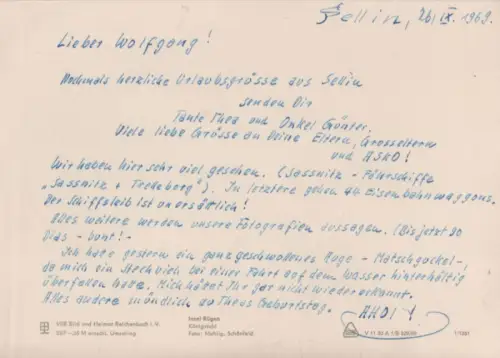 Sellin, 26. IX. 1969.
Lieber Wolfgang!
Nochmals herzliche Urlaubsgrüsse aus Sellin
senden Dir
Tante Thea und Onkel Günter.
Viele liebe Grüsse an Deine Eltern, Grosseltern
und ASKO!
Wir haben hier sehr viel gesehen. (Sassnitz - Fährschiffe
"Sassnitz + Trelleborg"). In letztere gehen 44 Eisenbahnwaggons.
Der Schiffsleib ist unersättlich!
Alles weitere werden unsere Fotografien aussagen. (Bis jetzt 90
Dias - bunt! -
Ich habe gestern ein ganz geschwollenes Auge - Matschgockel -,
da mich ein Stechvieh bei einer Fahrt auf dem Wasser hinterhältig
überfallen habe. Mich hättet Ihr gar nicht wieder erkannt.
Alles andere mündlich zu Theas Geburtstag.
AHOI!
VEB Bild und Heimat Reichenbach i. V.
Insel Rügen
Königsstuhl
V 11 50 A 1/B
1/1261